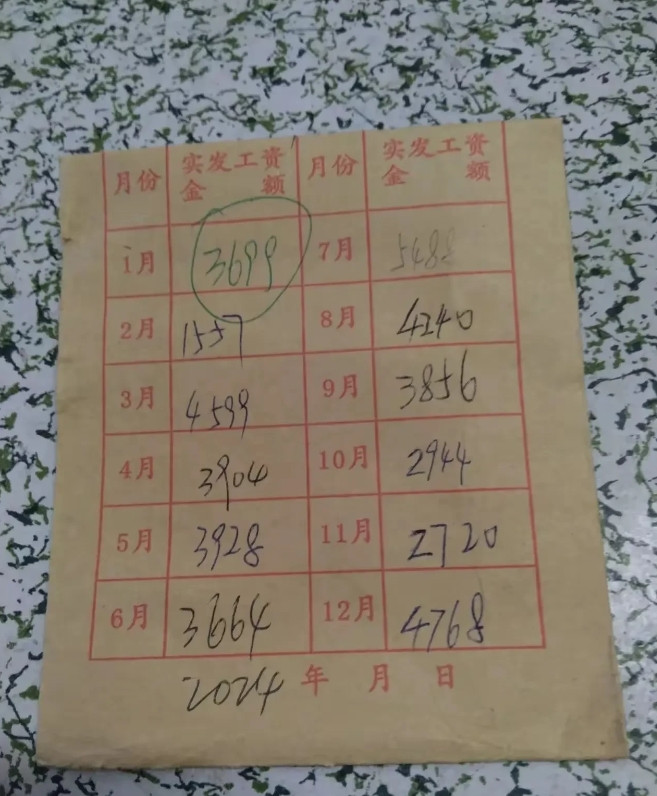 月份 实发工资金额 月份 实发工资金额
1月 3699 7月 5488
2月 1557 8月 4240
3月 4599 9月 3856
4月 3904 10月 2944
5月 3928 11月 2720
6月 3664 12月 4768
2024年 月 日